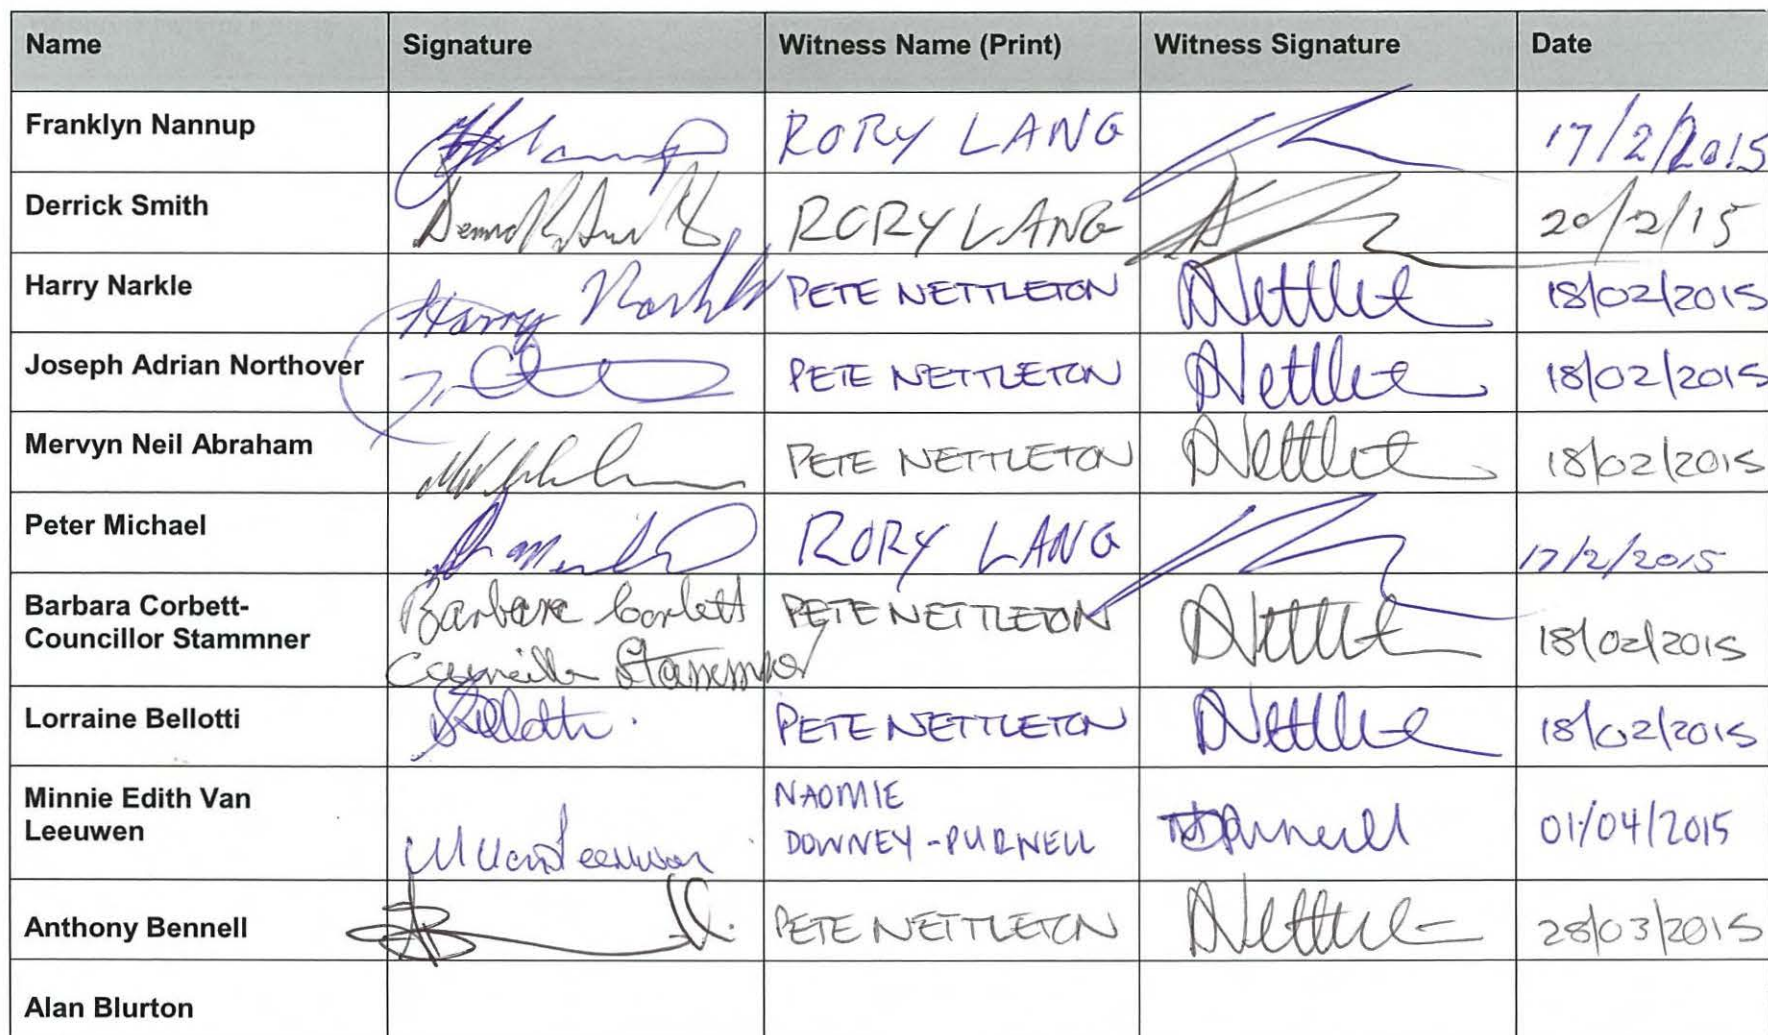 Name Signature Witness Name (Print) Witness Signature Date
Franklyn Nannup RORY LANG 17/2/2015
Derrick Smith RORY LANG 20/2/15
Harry Narkle Harry Narkle PETE NETTLETON Nettlet 18/02/2015
Joseph Adrian Northover PETE NETTLETON Nettlet 18/02/2015
Mervyn Neil Abraham PETE NETTLETON Nettlet 18/02/2015
Peter Michael RORY LANG 17/2/2015
Barbara Corbett- Barbara Corbett PETE NETTLETON Nettlet 18/02/2015
Councillor Stammner Councillor Stammner
Lorraine Bellotti Bellotti PETE NETTLETON Nettle 18/02/2015
Minnie Edith Van NAOMIE
Leeuwen M Van Leeuwen DOWNEY-PURNELL Purnell 01/04/2015
Anthony Bennell PETE NETTLETON Nettle 28/03/2015
Alan Blurton